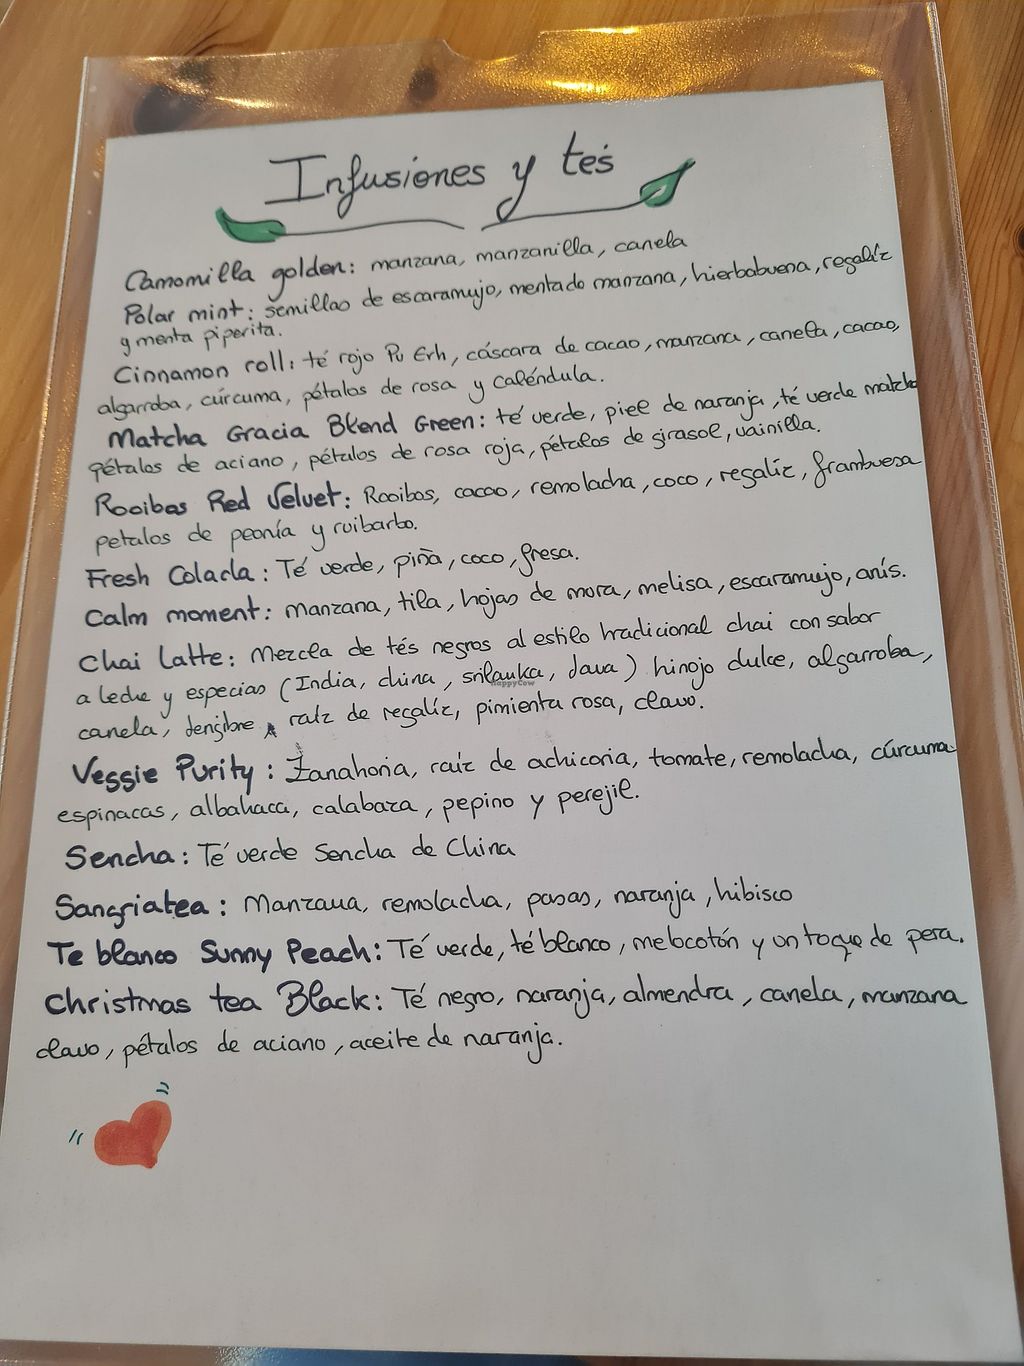 Infusiones y tés
Camomilla golden: manzana, manzanilla, canela
Polar mint: semillas de escaramujo, mentado manzana, hierbabuena, regalíz
y menta piperita.
Cinnamon roll: té rojo Pu Erh, cáscara de cacao, manzana, canela, cacao,
algarroba, cúrcuma, pétalos de rosa y caléndula.
Matcha Gracia Blend Green: té verde, piel de naranja, té verde matcha
pétalos de aciano, pétalos de rosa roja, pétalos de girasol, vainilla.
Rooibas Red Velvet: Rooibos, cacao, remolacha, coco, regalíz, frambuesa
petalos de peonía y ruibarbo.
Fresh Colada: Té verde, piña, coco, fresa.
Calm moment: manzana, tila, hojas de mora, melisa, escaramujo, anís.
Chai Latte: Mezcla de tés negros al estilo tradicional chai con sabor
a leche y especias (India, china, srilanka, Java) hinojo dulce, algarroba,
canela, Jengibre, raíz de regalíz, pimienta rosa, clavo.
HappyCow
Veggie Purity: Zanahoria, raíz de achicoria, tomate, remolacha, cúrcuma
espinacas, albahaca, calabaza, pepino y perejil.
Sencha: Té verde Sencha de China
Sangriatea: Manzana, remolacha, pasas, naranja, hibisco
Te blanco Sunny Peach: Té verde, té blanco, melocotón y un toque de pera.
Christmas tea Black: Té negro, naranja, almendra, canela, manzana
clavo, pétalos de aciano, aceite de naranja.